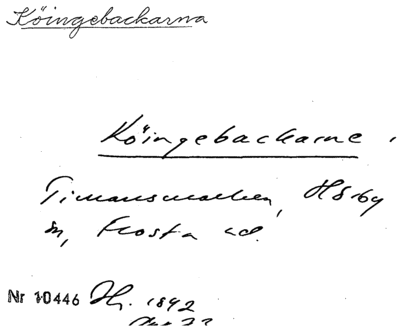 Köingebackarna
Köingebackarne.
Timansmarken, Hörby
sn, Frosta hd.
Nr 10446 Hz. 1892